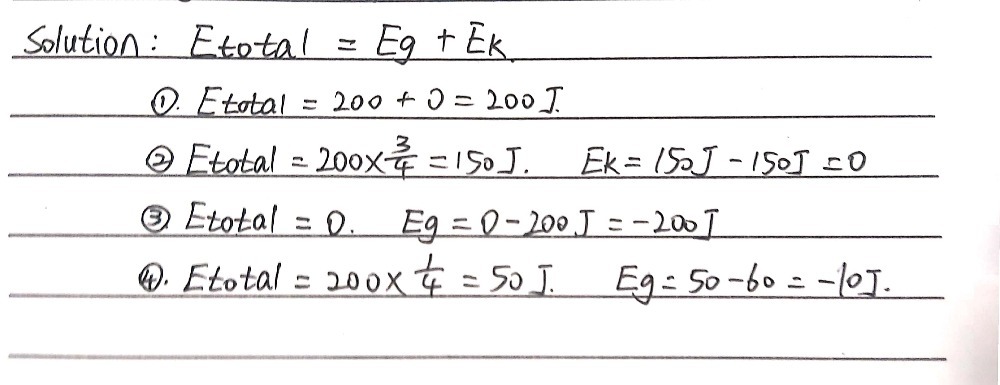 Solution: Etotal = Eg + Ek
①. Etotal = 200 + 0 = 200J.
② Etotal = 200×3/4 = 150J. Ek = 150J - 150J = 0
③ Etotal = 0. Eg = 0-200J = -200J
④. Etotal = 200×1/4 = 50J. Eg = 50-60 = -10J.